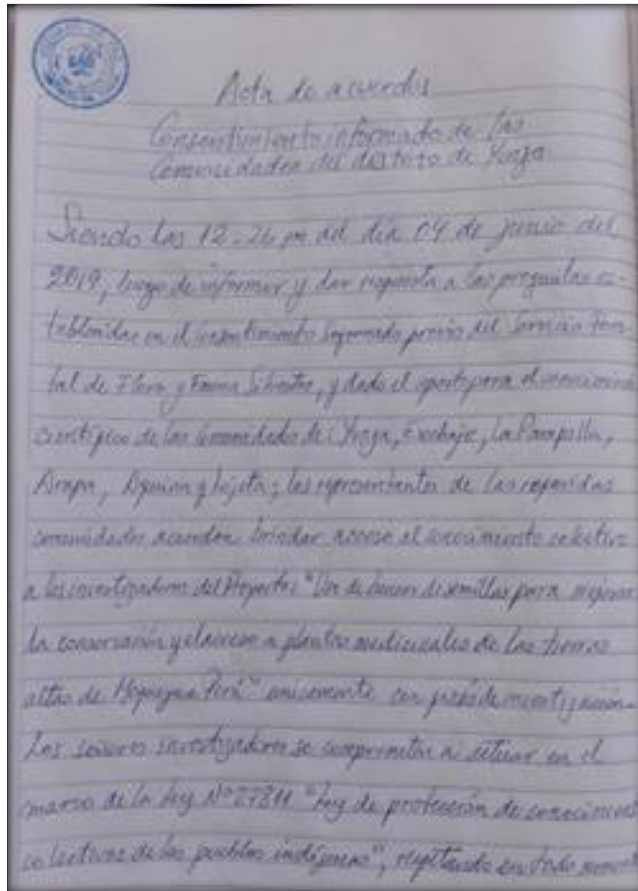 Acta de acuerdos
Consentimiento informado de las
Comunidades del distrito de Yunga.
Siendo las 12:26 pm del día 04 de junio del
2019, luego de informar y dar respuesta a las preguntas es-
tablecidas en el Consentimiento Informado previo del Servicio Fores-
tal de Flora y Fauna Silvestre, y dado el aporte para el conocimiento
científico de las Comunidades de Yunga, Exchaje, La Pampilla,
Arapa, y; los representantes de las referidas
comunidades acuerdan brindar acceso al conocimiento colectivo
a los investigadores del Proyecto: "Uso de bancos de semillas para mejorar
la conservación y el acceso a plantas medicinales de las tierras
altas de Moquegua Perú" únicamente con fines de investigación.
Los señores investigadores se comprometen a actuar en el
marco de la Ley N° 27811 "Ley de protección de conocimientos
colectivos de los pueblos indígenas", respetando en todo